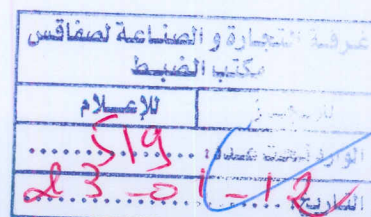 غرفة التجارة و الصناعة لصفاقس
مكتب الضبط
للإعلام
الوارد تحت عدد: 519
التاريخ 23-01-12